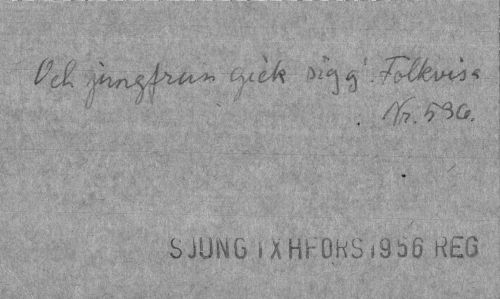 Och jungfrun gick sigg. Folkvisa
Nr. 596.
SJUNG IX HFORS 1956 REG